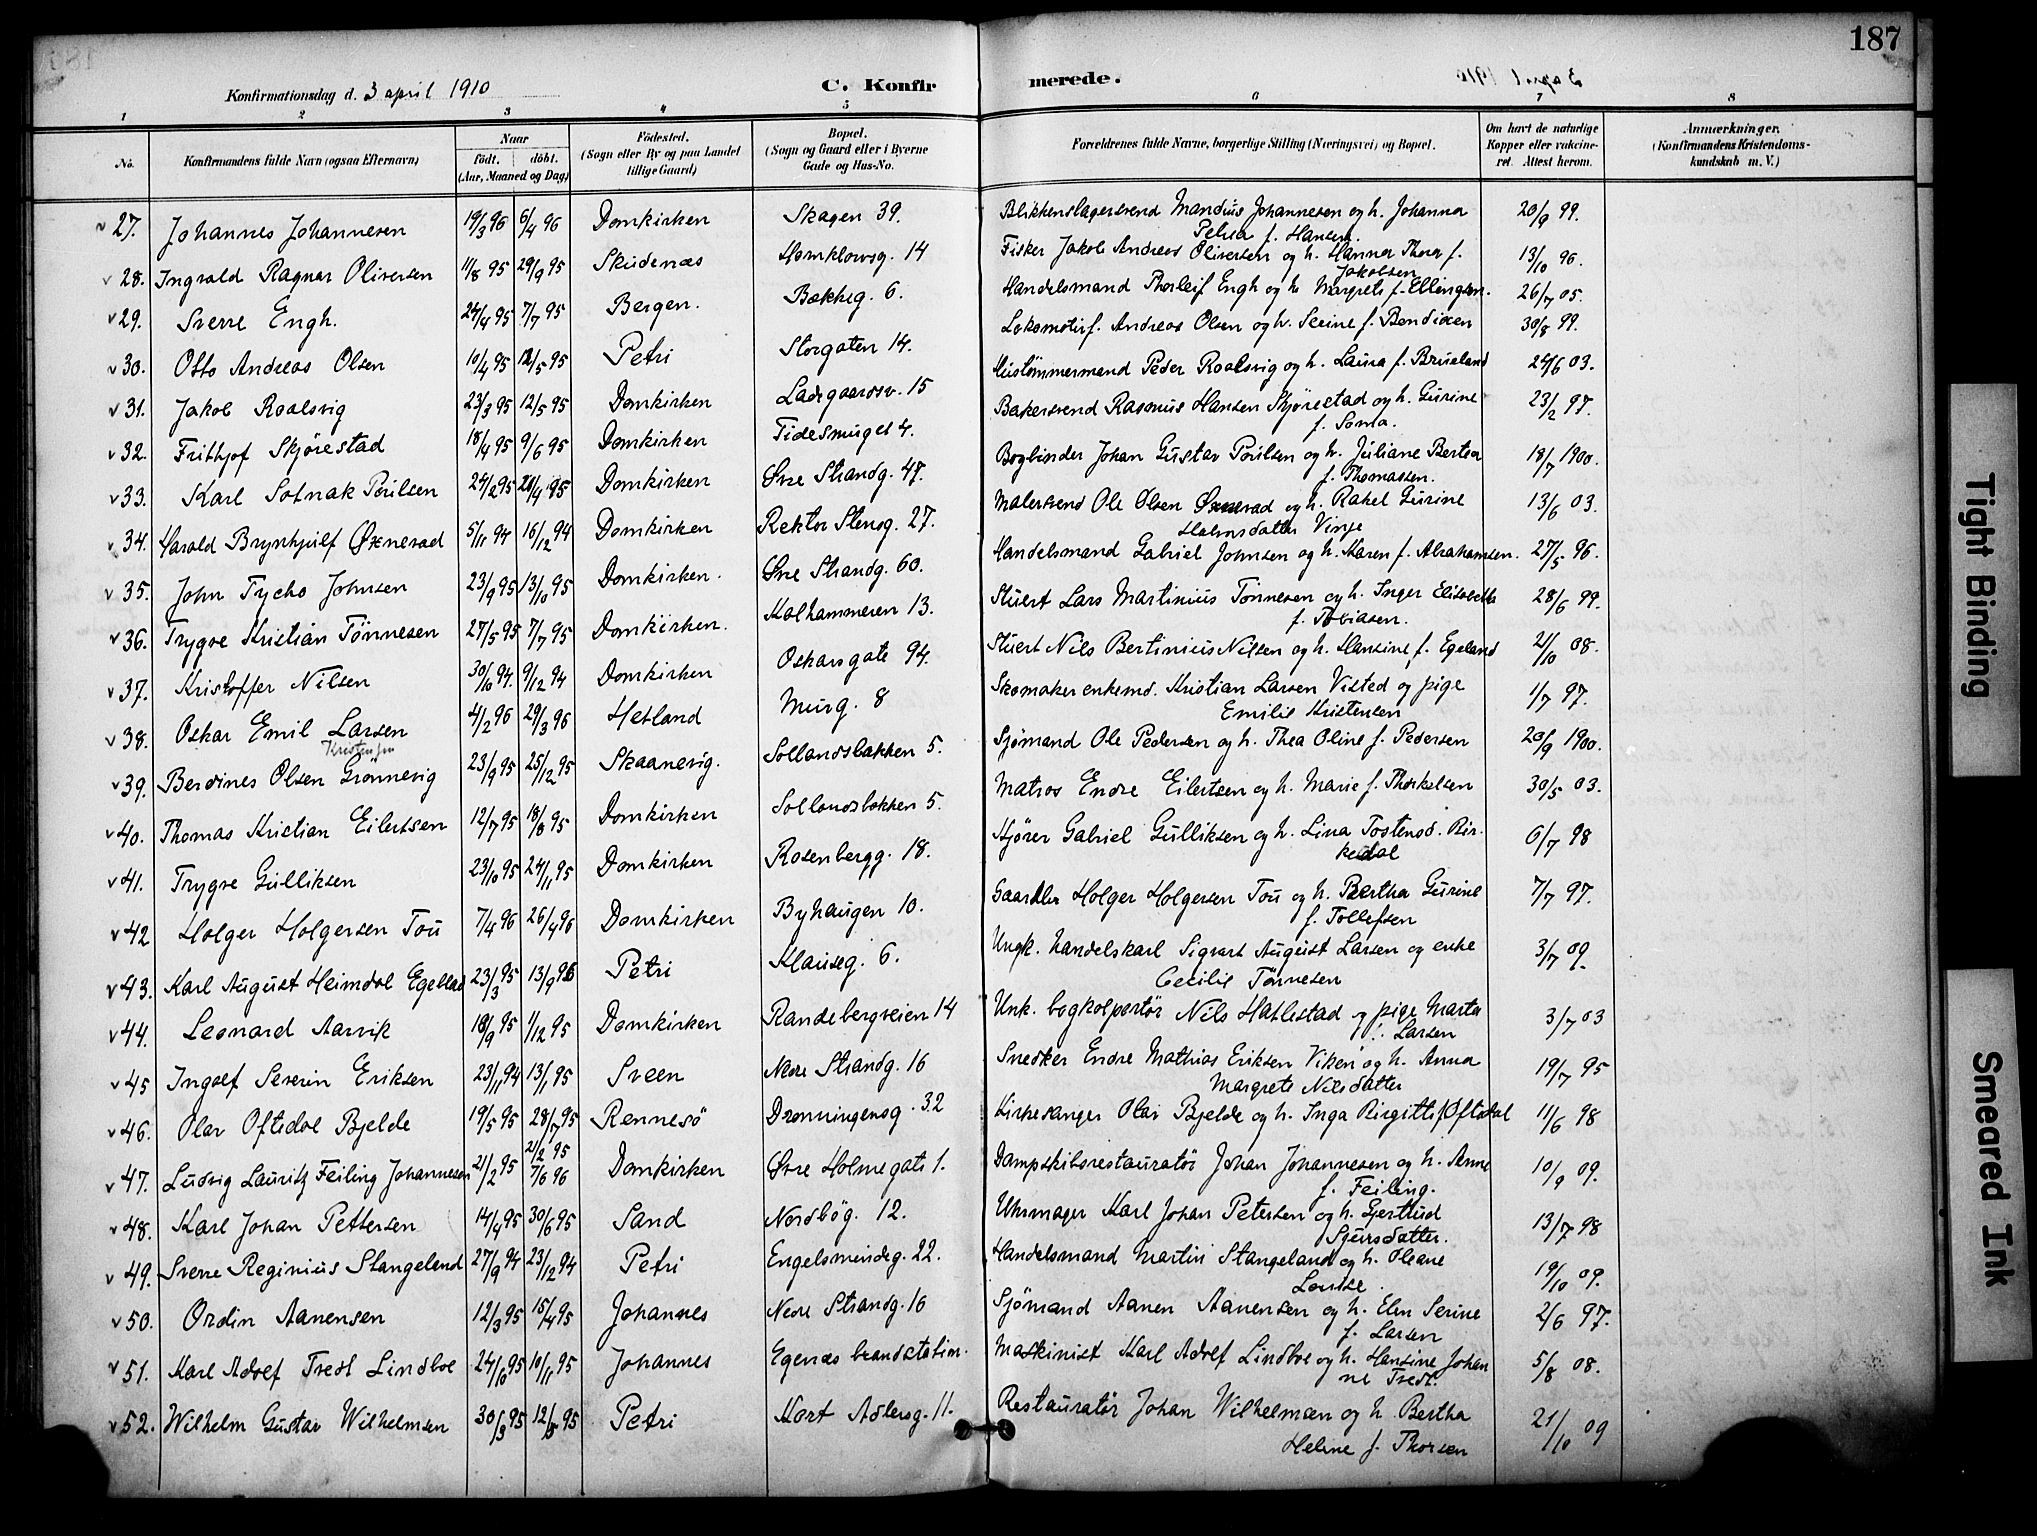 187
Konfirmationsdag d. 3 april 1910
C. Konfir merede.
1 2 3 4 5 6 7 8
No. Konfirmandens fulde Navn (ogsaa Efternavn) Naar født. døbt. (Aar, Maaned og Dag) Fødested. (Sogn eller By og paa Landet tillige Gaard) Bopæl. (Sogn og Gaard eller i Byerne Gade og Hus-No. Forældrenes fulde Navne, borgerlige Stilling (Næringsvei) og Bopæl. Om havt de naturlige Kopper eller vaccineret. Attest herom. Anmærkninger. (Konfirmandens Kristendomskundskab m. V.)
27. Johannes Johannesen 19/3 96 6/4 96 Domkirken Skagen 39. Blikkenslagersvend Mandius Johannesen og h. Johanna Petrea f. Hansen. 20/9 99.
28. Ingvald Ragnar Oliversen 11/8 95 29/9 95 Skudenæs 14 Fisker Jakob Andreas Oliversen og h. Hanna Thora f. Jakobsen 13/10 96.
29. Sverre Engh. 24/4 95 7/7 95 Bergen. Bakkeg. 6. Handelsmand Thorleif Engh og h. Margrete f. Ellingsen. 26/7 05.
30. Otto Andreas Olsen 10/4 95 12/5 95 Petri Storgaten 14. Lokomotivf. Andreas Olsen og h. Serine f. Bendixen 30/8 99.
31. Jakob Roalsvig 23/3 95 12/5 95 Domkirken Ladegaardsv. 15 Hustømmermand Peder Roalsvig og h. Laura f. Brueland 24/6 03.
32. Frithjof Skjørestad 18/4 95 9/6 95 Domkirken Tidesmuget 4. Bakersvend Rasmus Hansen Skjørestad og h. Gurine f. Soma. 23/2 97.
33. Karl Sofnak Poulsen 24/2 95 21/4 95 Domkirken Øvre Strandg. 47. Bogbinder Johan Gustav Poulsen og h. Juliane Bertea f. Thomassen. 18/7 1900.
34. Harald Brynhjulf Øxnevad 5/11 94 16/12 94 Domkirken Rektor Stensg. 27. Malersvend Ole Olsen Øxnevad og h. Rakel Gurine Vinje 13/6 03.
35. John Tycho Johnsen 23/9 95 13/10 95 Domkirken. Øvre Strandg. 60. Handelsmand Gabriel Johnsen og h. Karen f. Abrahamsen. 27/5 96.
36. Trygve Kristian Tønnesen 27/5 95 7/7 95 Domkirken. Kalhammeren 13. Stuert Lars Martinius Tønnesen og h. Inger Elisabeth f. Tobiasen. 28/6 99.
37. Kristoffer Nilsen 30/10 94. 9/12 94 Domkirken Oskarsgate 94. Stuert Nils Bertinius Nilsen og h. Hansine f. Egeland 2/10 08.
38. Oskar Emil Larsen Kristensen 4/2 96 29/3 96 Hetland Murg. 8 Skomaker enkemd. Kristian Larsen Visted og pige Emilie Kristensen 1/7 97.
39. Berdines Olsen Grønnevig 23/9 95 25/12 95 Skaanevig. Sollandsbakken 5. Sjømand Ole Pedersen og h. Thea Oline f. Pedersen 20/9 1900.
40. Thomas Kristian Eilertsen 12/7 95 18/8 95 Domkirken Sollandsbakken 5. Matros Endre Eilertsen og h. Marie f. Thorkelsen 30/5 03.
41. Trygve Gulliksen 23/10 95 24/11 95 Domkirken Rosenbergg. 18. Kjører Gabriel Gulliksen og h. Lina Tostensd. Birkedal 6/7 98
42 Holger Holgersen Tou 7/4 96 26/4 96 Domkirken Byhaugen 10. Holger Holgersen Tou og h. Bertha Gurine f. Tollefsen 7/7 97.
43. Karl August Heimdal Egeland 23/3 95 13/9 96 Petri Klausg. 6. Ungk. handelskarl Sigvart August Larsen og enke Cecilie Tønnesen 3/7 09.
44. Leonard Aarvik 18/9 95 1/12 95 Domkirken Randebergveien 14 Unk. bogkolportør Nils Hatlestad og pige Marta Larsen 3/7 03
45 Ingolf Severin Eriksen 23/11 94 13/1 95 Sveen Nedre Strandg. 16 Snedker Endre Mathias Eriksen Viken og h. Anna Margrete Nilsdatter 19/7 95
46. Olav Oftedal Bjelde 19/5 95 28/7 95 Rennesø Dronningensg. 32 Kirkesanger Olai Bjelde og h. Inga Birgitte f. Oftedal 11/6 98
47. Ludvig Lauritz Feiling Johannesen 21/2 95 21/2 95 7/6 96 Domkirken Øvre Holmegate 1. Dampskibsrestauratør Johan Johannesen og h. Anne f. Feiling. 10/9 09.
48. Karl Johan Pettersen 14/4 95 30/6 95 Sand Nordbøg. 12. Uhrmager Karl Johan Petersen og h. Gjertrud Sjursdatter. 13/7 98
49. Sverre Reginius Stangeland 27/9 94 23/12 94 Petri Engelsmindeg. 22. Handelsmand Martin Stangeland og h. Oleane Lovise. 19/10 09.
50. Ordin Aanensen 12/3 95 15/4 95 Johannes Nedre Strandg. 16 Sjømand Aanen Aanensen og h. Elen Serine f. Larsen 2/6 97.
51. Karl Adolf Tredt Lindboe 24/10 95 10/11 95 Johannes Egenæs brandstation. Maskinist Karl Adolf Lindboe og h. Hansine Johanne Tredt. 5/8 08.
52. Wilhelm Gustav Wilhelmsen 30/3 95 12/5 95 Petri Kort Adlersg. 11. Restauratør Johan Wilhelmsen og h. Bertha Heline f. Thorsen 21/10 09
Tight Binding
Smeared Ink